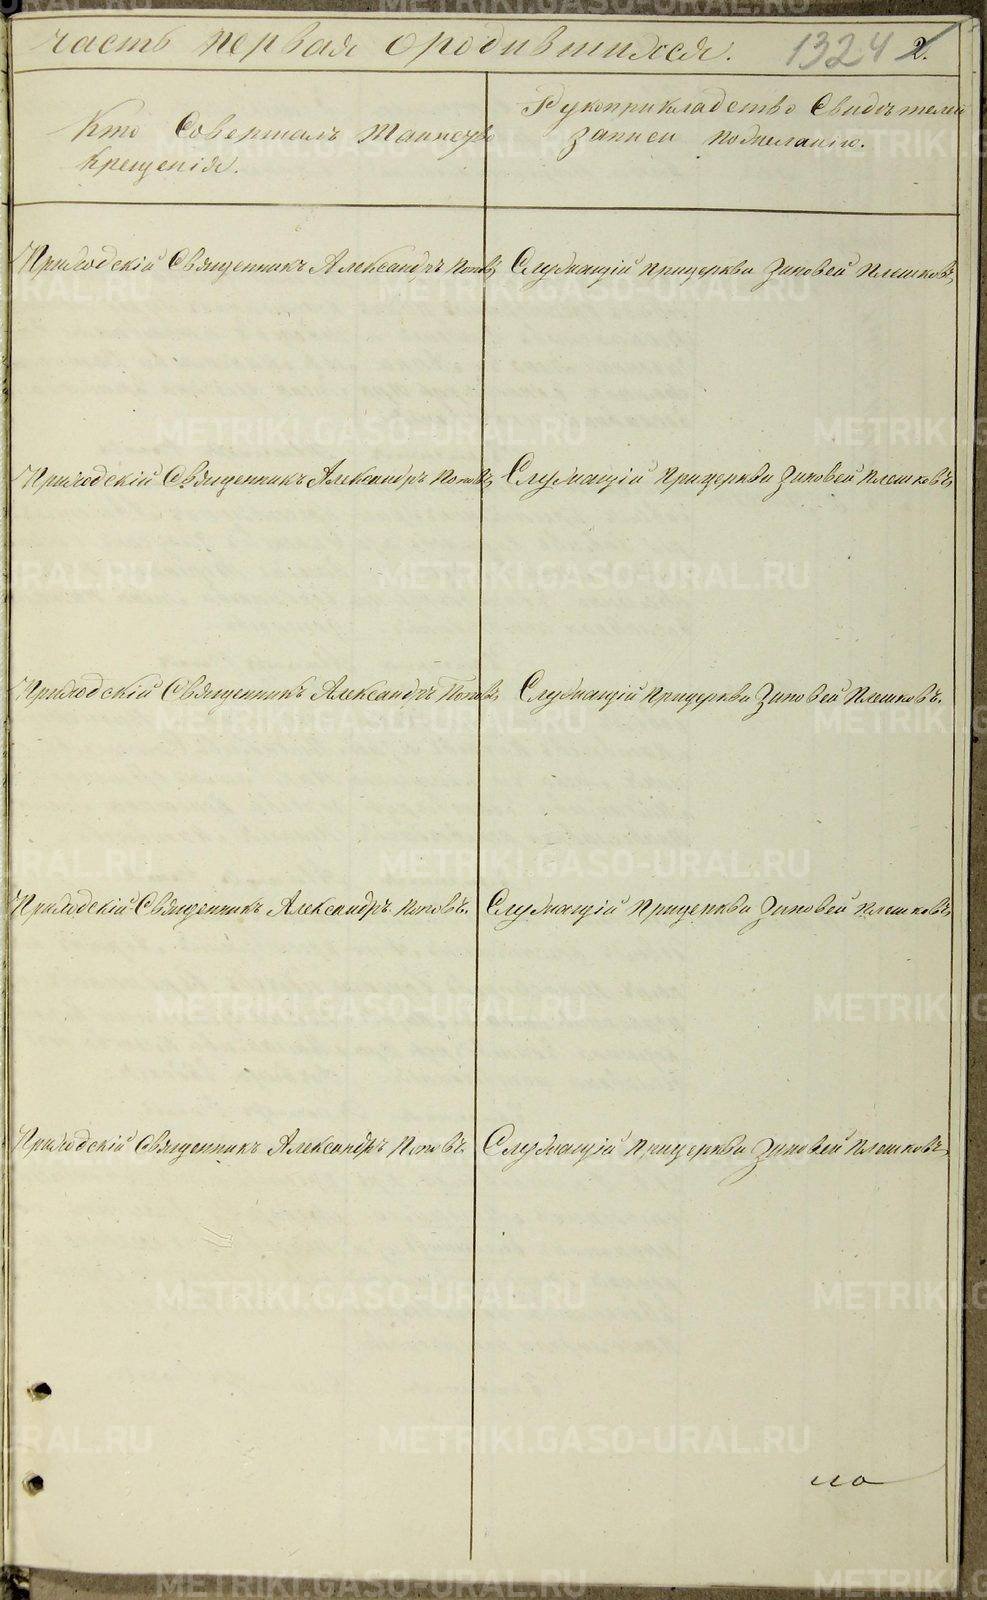 часть первая о родившихся. 1324 2.
Кто Совершалъ таинство
крещенія.
Рукоприкладство Свидѣтелей
записи по желанію.
Приходскій Священникъ Александръ Поповъ, Служащій при церкви Зиновей Плешковъ,
Приходскій Священникъ Александръ Поповъ, Служащій при церкви Зиновей Плешковъ,
Приходскій Священникъ Александръ Поповъ, Служащій при церкви Зиновей Плешковъ.
Приходскій Священникъ Александръ Поповъ. Служащій при церкви Зиновей Плешковъ,
Приходскій Священникъ Александръ Поповъ. Служащій при церкви Зиновей Плешковъ,
METRIKI.GASO-URAL.RU